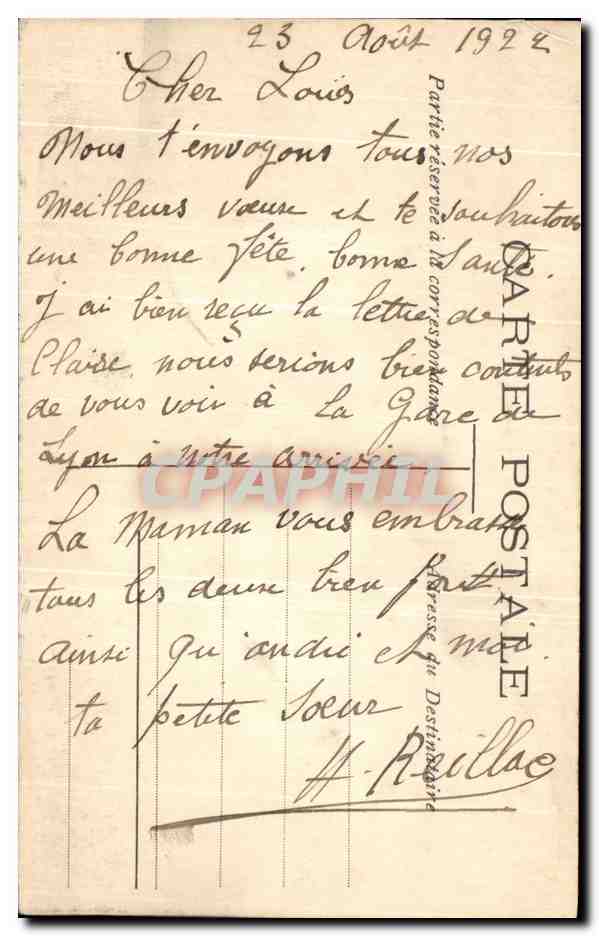 23 Août 1922
Cher Louis
Nous t'envoyons tous nos
meilleurs voeux et te souhaitons
une bonne fête, bonne Santé.
J'ai bien reçu la lettre de
Claire, nous serions bien contents
de vous voir à la Gare de
Lyon à notre arrivée
La Maman vous embrasse
tous les deux bien fort
ainsi qu'andré et moi.
ta petite Soeur
H. Reillac
CARTE POSTALE
Partie réservée à la correspondance
Adresse du Destinataire
CPAPHIL